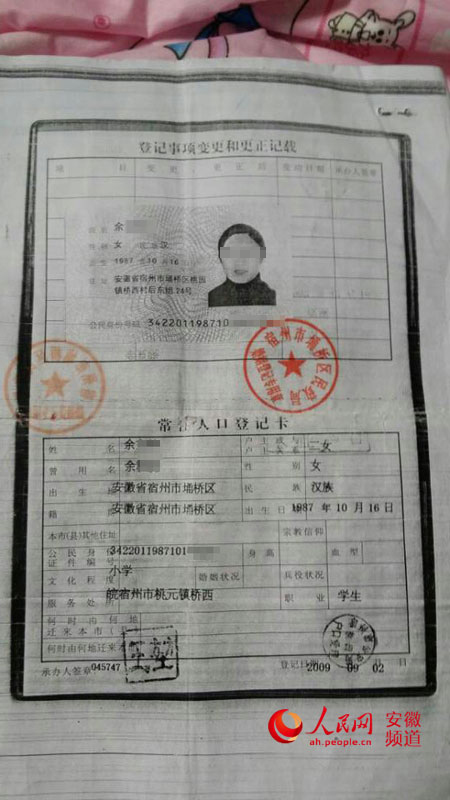 登记事项变更和更正记载
项 目 变 更 、 更 正 后 变动日期 承办人签章
姓名 余
性别 女 民族 汉
出生 1987 年 10 月 16 日
住址 安徽省宿州市埇桥区桃园
镇桥西村后东组 24号
公民身份号码 342201198710
宿州市埇桥区民政局
常住人口登记卡
姓 名 余 户主或与户主关系 二女
曾用名 余 性别 女
出生地 安徽省宿州市埇桥区 民族 汉族
籍贯 安徽省宿州市埇桥区 出生日期 1987 年 10 月 16 日
本市(县)其他住址 宗教信仰
公民身份证件编号 3422011987101 身高 血型
文化程度 小学 婚姻状况 兵役状况
服务处所 皖宿州市桃元镇桥西 职业 学生
何时由何地迁来本市
何时由何地迁来本址
承办人签章 045747 登记日期 2009 年 09 月 02 日
人民网 安徽频道
ah.people.cn